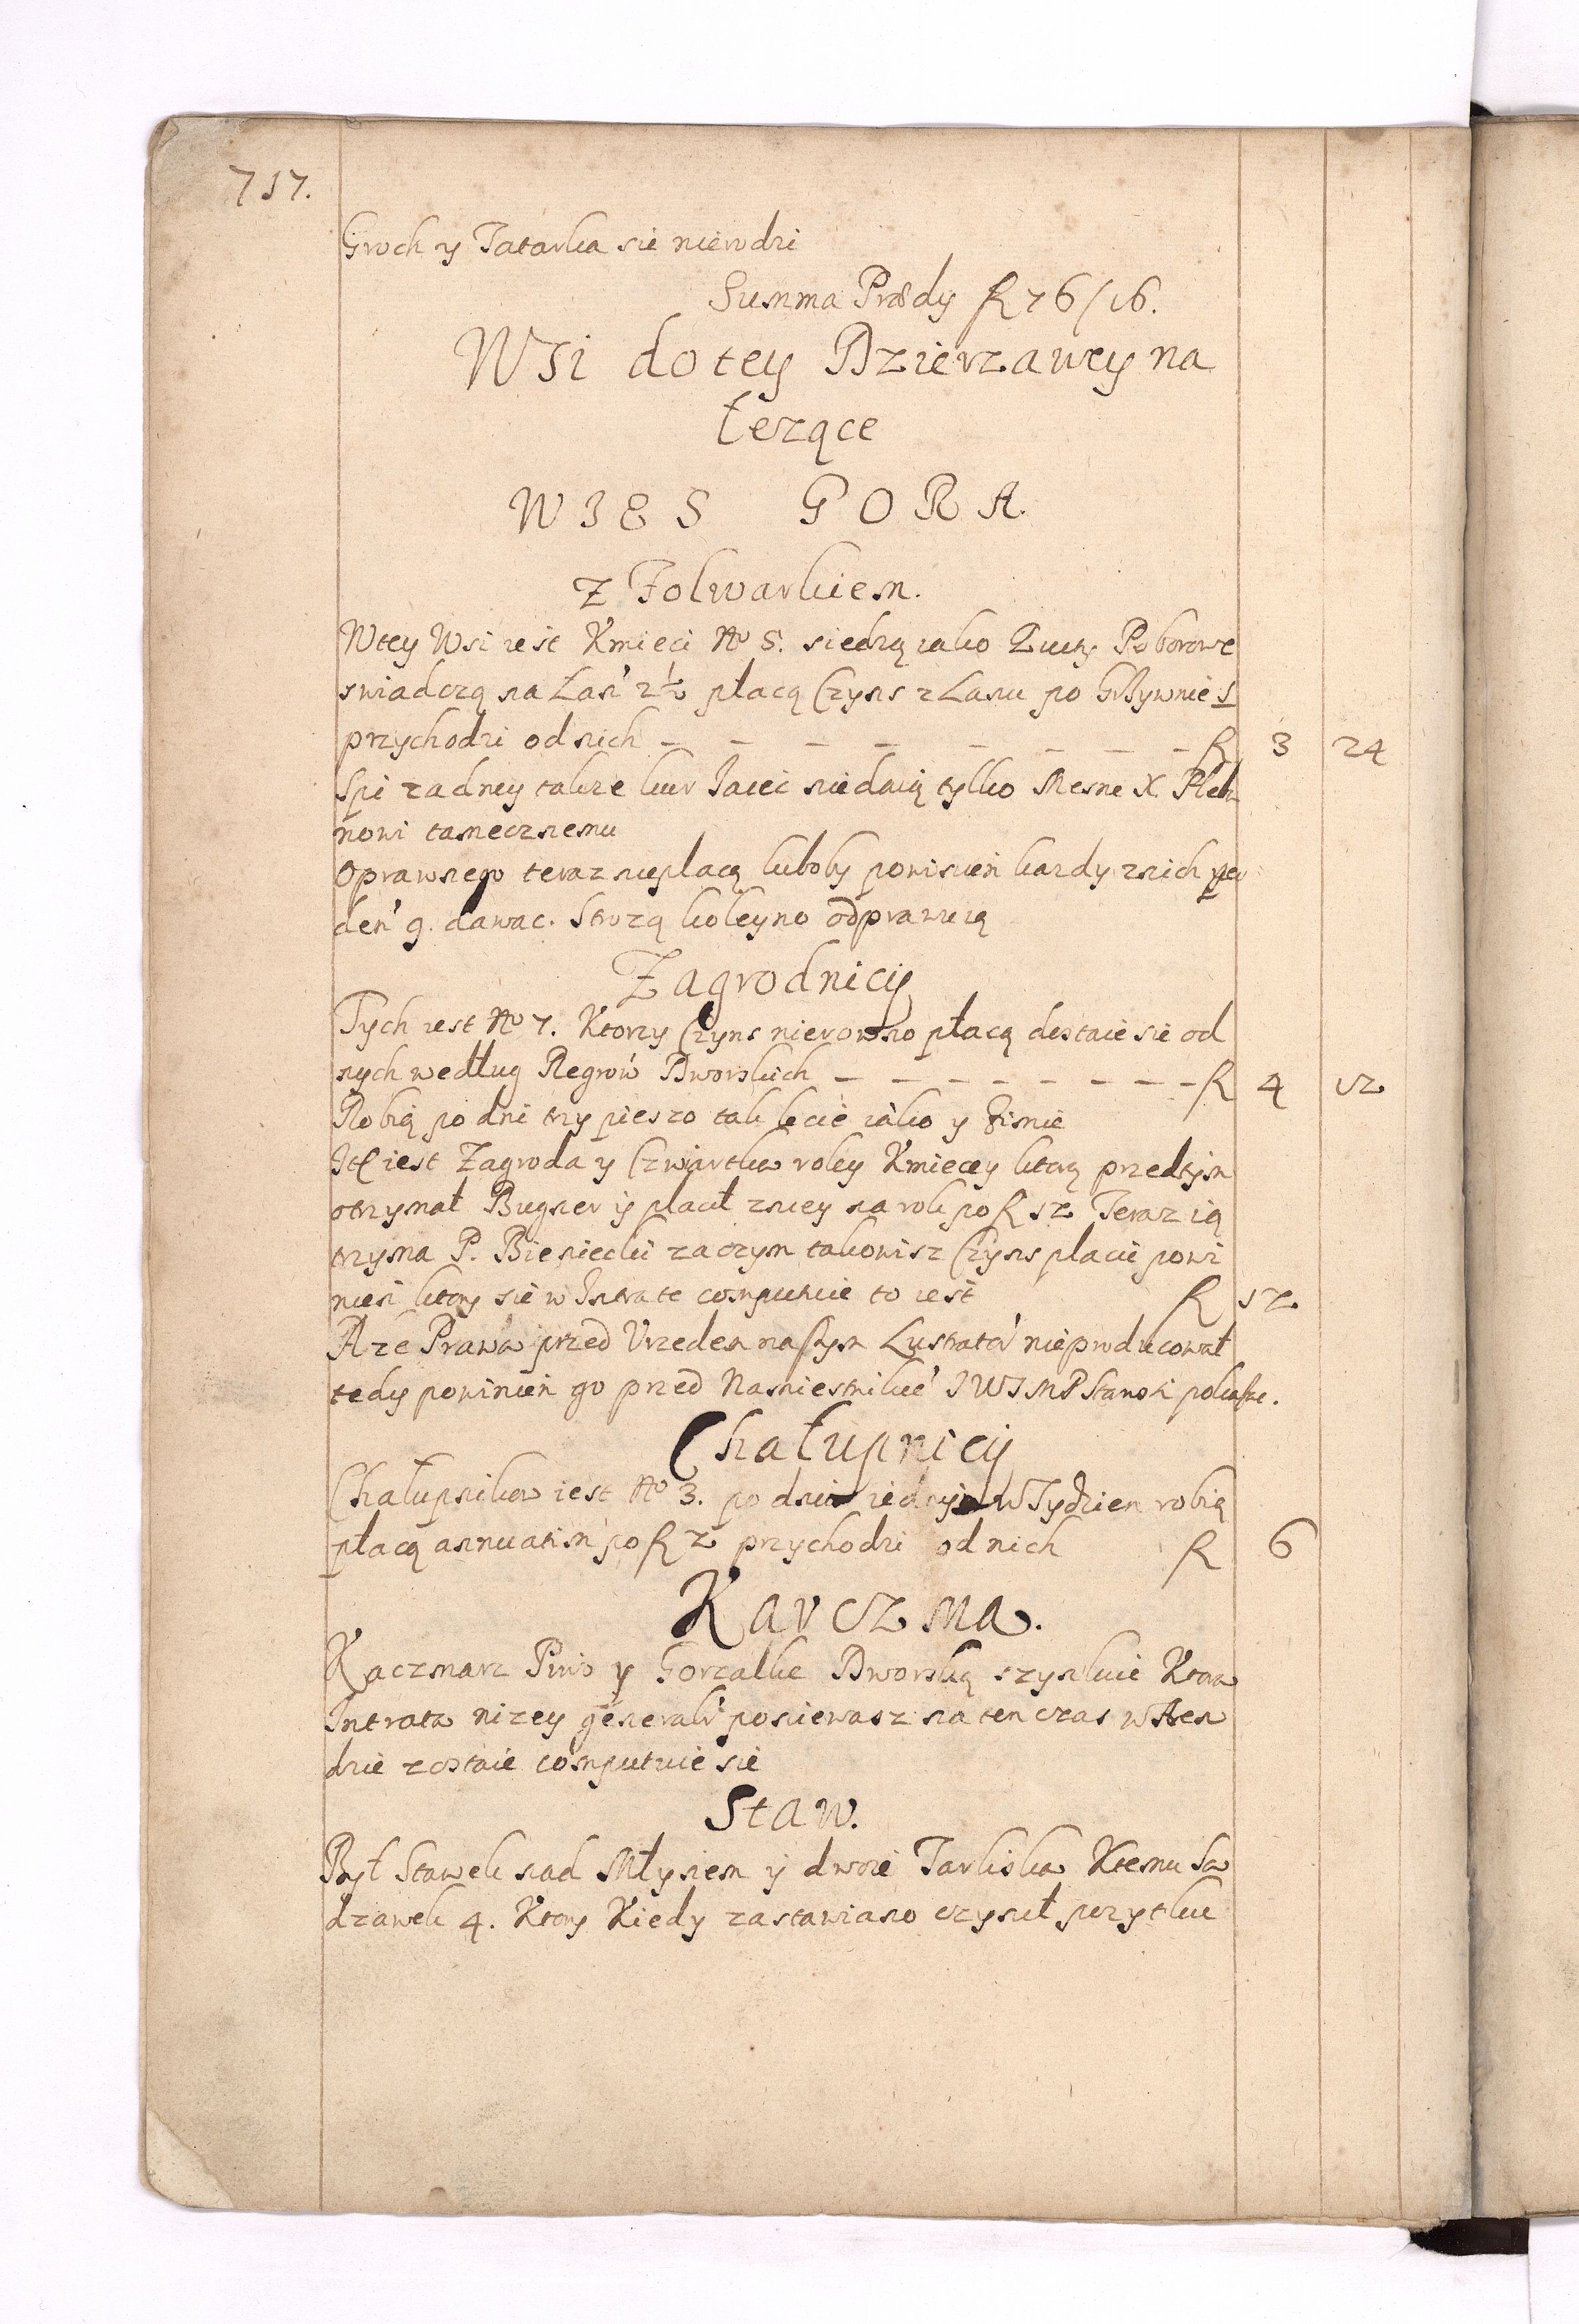 717.
Groch y Tatarka sie nierodzi
Summa Prædy fl 76/16.
Wsi do tey Dzierzawy na
lezące
WIES GORA
z Folwarkiem.
Wtey Wsi iest Kmieci No 5. siedzą iako Quity Poborowe
swiadczą na Łan 2½ płacą Czyns z Lanu po Grzywnie 1
przychodzi od nich - - - - - - - - fl 3 24
Spi zadney takze kur Jaiec niedaią tylko Mesne X Pleba
nowi tamecznemu
Oprawnego teraz niepłacą kuboby powinien kazdy znich per
den 9. dawac. Strozą koleyno odprawuią
Zagrodnicy
Tych iest No 7. Ktorzy Czyns nierowno płacą dostaie sie od
nych według Regrów Dworskich - - - - - - - - fl 4 12
Robią po dni trzy pieszo tak lecie iako y Zimie
Itē iest Zagroda y Czwiartka roley Kmiecey ktorą przedtym
otrzymał Bugner ÿ płacił zniey na rok po fl 12 Teraz ią
trzyma P. Bieniecki zaczym takowisz Czyns płacic powi
nien ktory sie w Intrate computuie to iest fl 12
A ze Prawa przed Urzedem naszym Lustrator nieprodukował
tedy powinien go przed Namiestnikie JWJMP Starosti pokazac.
Chałupnicy
Chałupnikow iest No 3. po dniu iednym w Tydzien robią
płacą annuatim po fl 2 przychodzi od nich fl 6
Karczma.
Kaczmarz Piwo y Gorzałke Dworską szynkuie Ktora
Intrata nizey generalr poniewasz na ten czas w Aren
dzie zostaie computuie sie
Staw.
Był Stawek nad Młynem ÿ dwoie Tarliska Ktemu Sa
dzawek 4. Ktory Kiedy zastawiano czynił pozytku